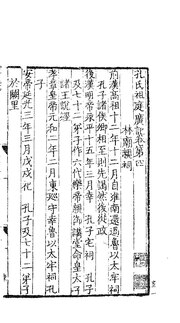 孔氏祖庭廣記卷第四
林廟
前漢高祖十二年十一月自淮南還過魯以太牢祠
孔子諸侯卿相至則先謁然後從政
後漢明帝永平十五年三月幸 孔子宅祠 孔子
及七十二弟子作六代樂帝御講堂命皇太子
諸王說經
孝章皇帝元和二年二月東巡守幸魯以太牢祠孔
子
安帝延光三年三月戊戌祀 孔子及七十二弟子
於闕里